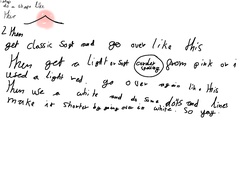 do a shape like
this
2 then
get classic soft and go over like this
then get a light or soft under spring from pink or i
used a light red. go over again like this
then use a white and do some dots and lines
make it shorter by going over in white. so yay